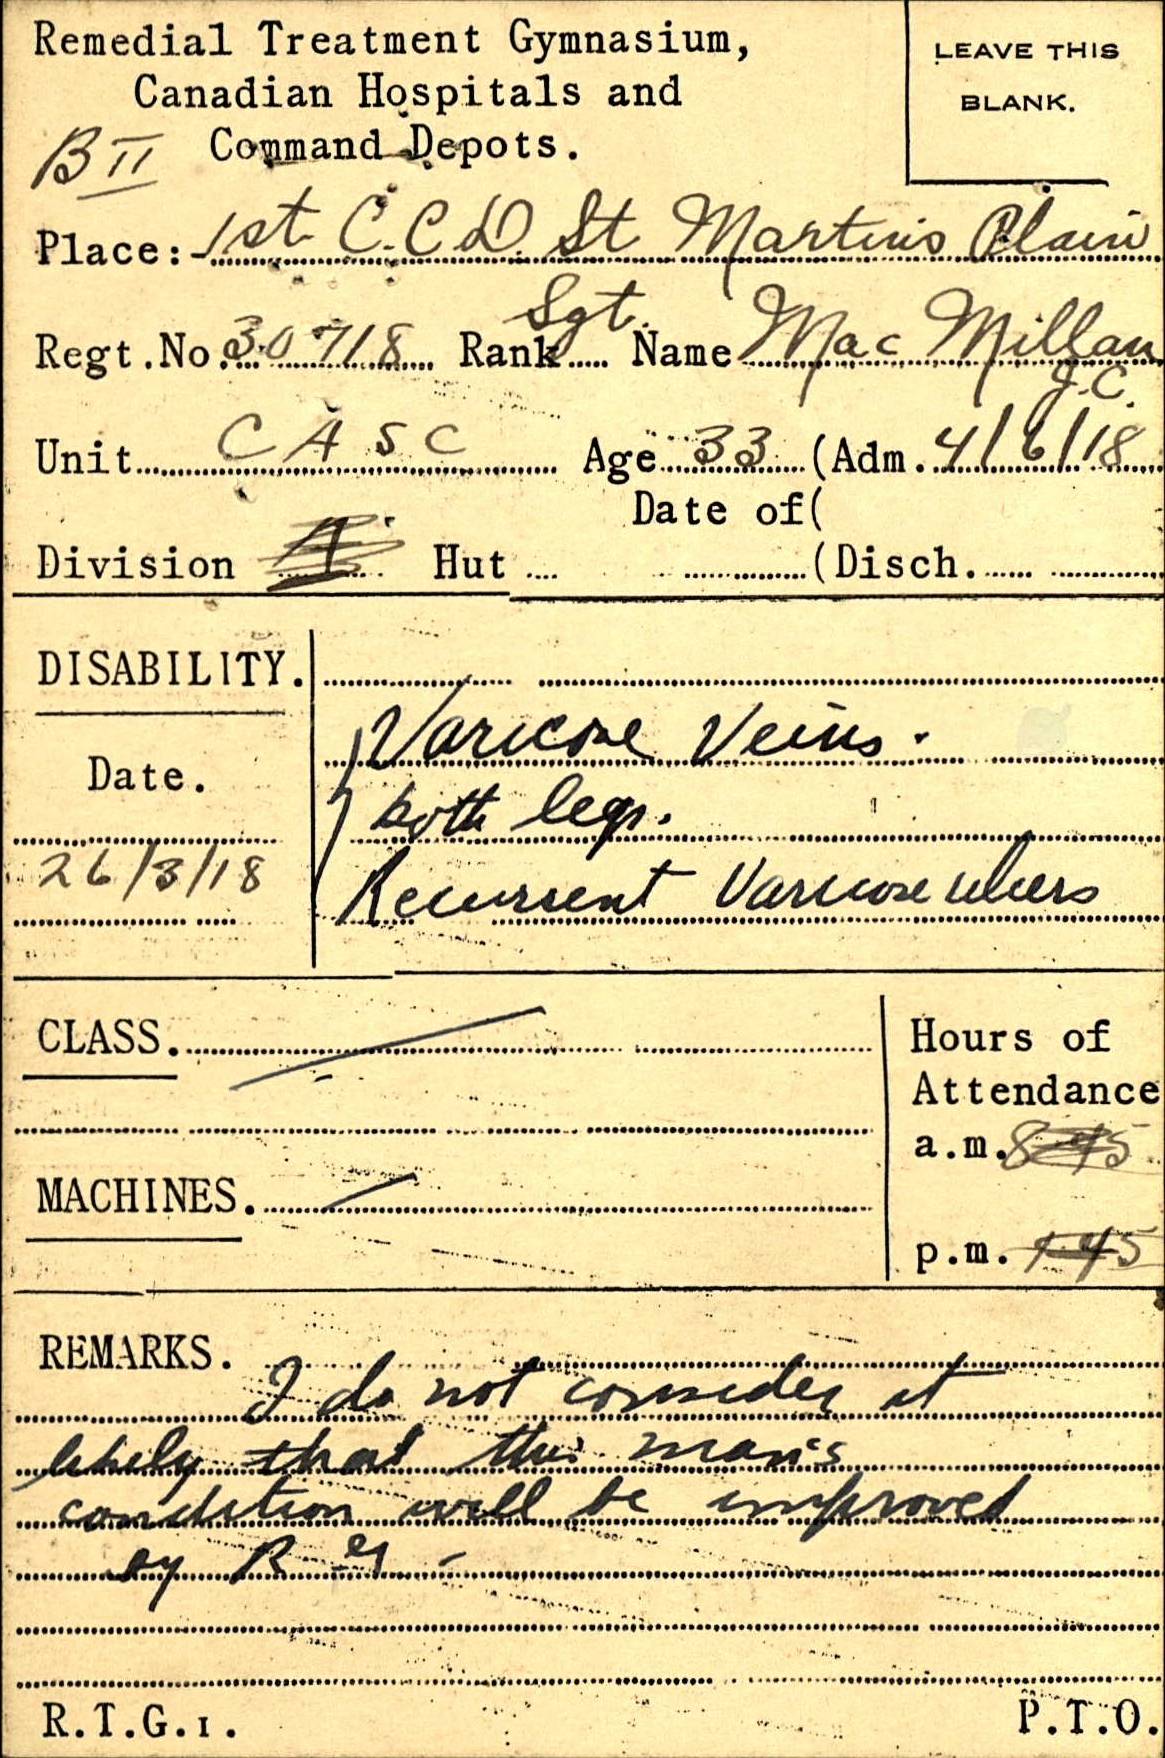 Remedial Treatment Gymnasium,
Canadian Hospitals and
Command Depots.
LEAVE THIS
BLANK.
B II
Place:- 1st C.C.D. St Martins Plain
Regt.No. 30718 Rank Sgt. Name Mac Millan
J.C.
Unit C A S C Age 33 (Adm. 4/6/18
Date of(
Division 1 Hut (Disch.
DISABILITY.
Varicose Veins.
Date.
both legs.
26/3/18
Recurrent Varicose ulcers
CLASS.
Hours of
Attendance
a.m. 8-45
MACHINES.
p.m. 1-45
REMARKS.
I do not consider it
likely that this man's
condition will be improved
by R G -
R.T.G.1.
P.T.O.